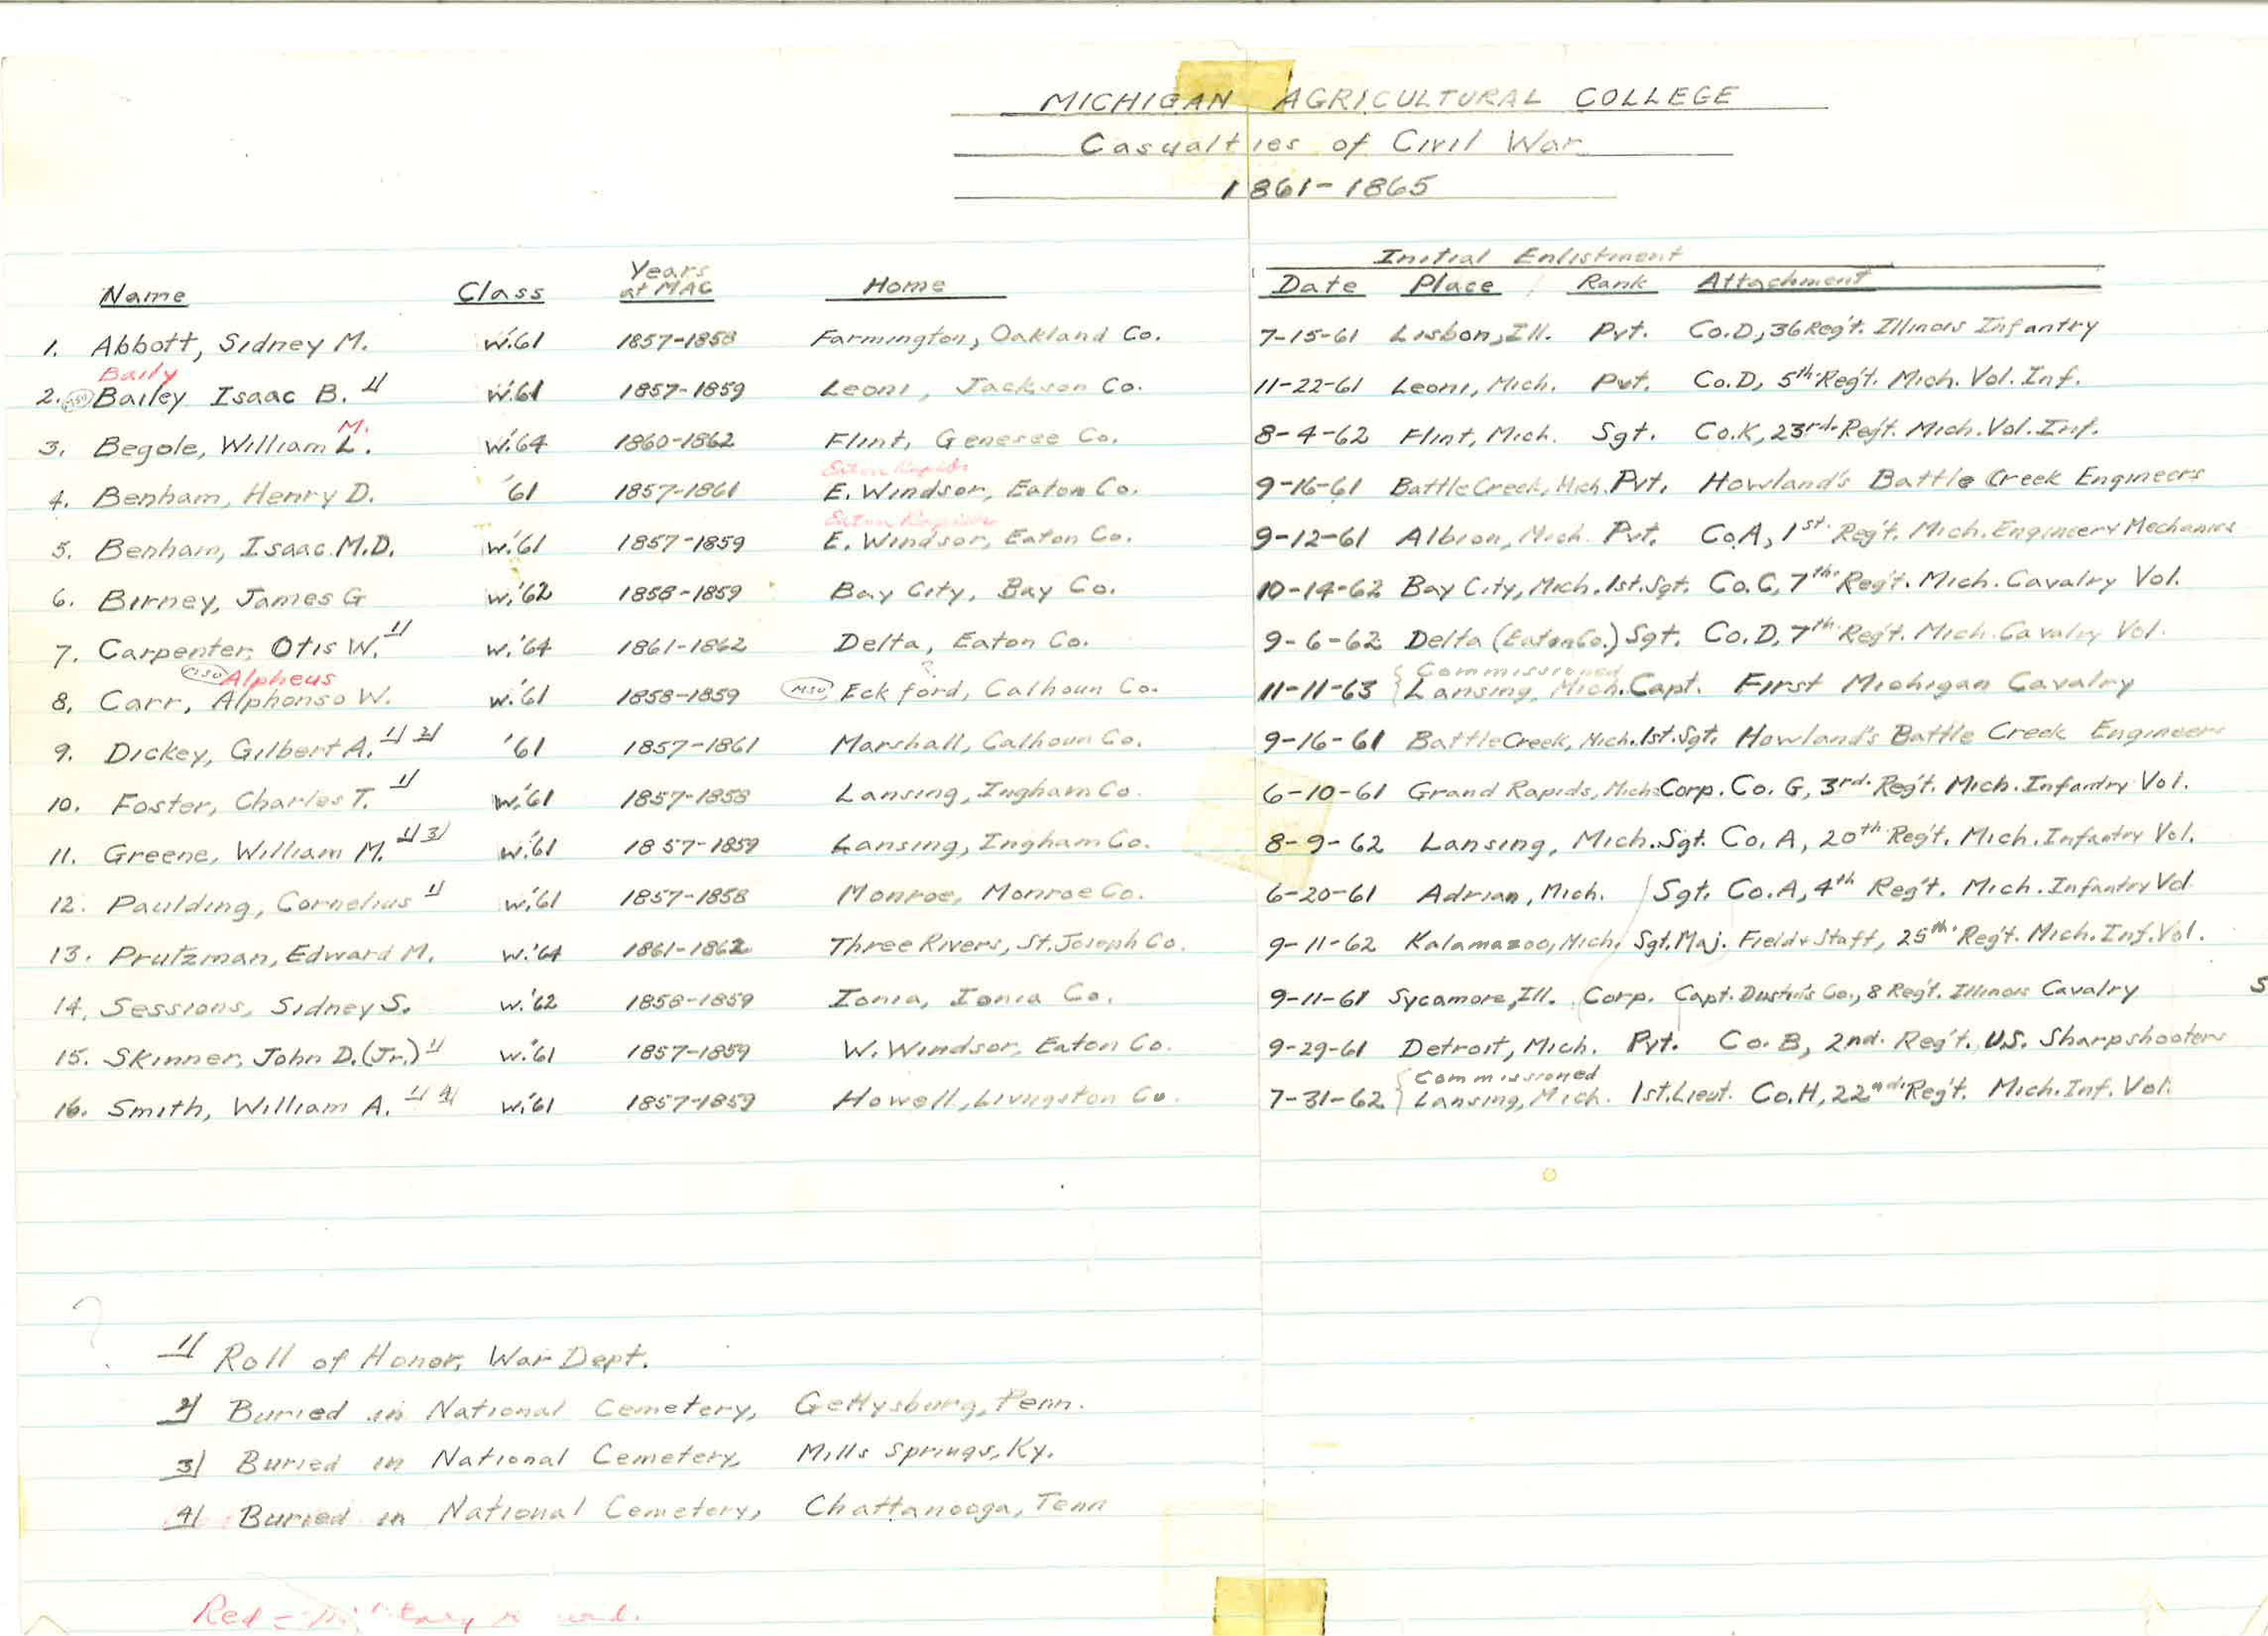 MICHIGAN AGRICULTURAL COLLEGE
Casualties of Civil War
1861-1865
Initial Enlistment
Name Class Years at MAC Home Date Place Rank Attachment
1. Abbott, Sidney M. w.'61 1857-1858 Farmington, Oakland Co. 7-15-61 Lisbon, Ill. Pvt. Co. D, 36 Reg't. Illinois Infantry
Baily
2. MSU Bailey Isaac B. 1/ w.'61 1857-1859 Leoni, Jackson Co. 11-22-61 Leoni, Mich. Pvt. Co. D, 5th Reg't. Mich. Vol. Inf.
M.
3. Begole, William L. w.'64 1860-1862 Flint, Genesee Co. 8-4-62 Flint, Mich. Sgt. Co. K, 23rd. Reg't. Mich. Vol. Inf.
Eaton Rapids
4. Benham, Henry D. '61 1857-1861 E. Windsor, Eaton Co. 9-16-61 Battle Creek, Mich. Pvt. Howland's Battle Creek Engineers
Eaton Rapids
5. Benham, Isaac M.D. w.'61 1857-1859 E. Windsor, Eaton Co. 9-12-61 Albion, Mich. Pvt. Co. A, 1st. Reg't. Mich. Engineer & Mechanics
6. Birney, James G w.'62 1858-1859 Bay City, Bay Co. 10-14-62 Bay City, Mich. 1st. Sgt. Co. C, 7th. Reg't. Mich. Cavalry Vol.
7. Carpenter, Otis W. 1/ w.'64 1861-1862 Delta, Eaton Co. 9-6-62 Delta (Eaton Co.) Sgt. Co. D, 7th. Reg't. Mich. Cavalry Vol.
MSU Alpheus ? Commissioned
8. Carr, Alphonso W. w.'61 1858-1859 MSU Eckford, Calhoun Co. 11-11-63 { Lansing, Mich. Capt. First Michigan Cavalry
9. Dickey, Gilbert A. 1/ 2/ '61 1857-1861 Marshall, Calhoun Co. 9-16-61 Battle Creek, Mich. 1st. Sgt. Howland's Battle Creek Engineers
10. Foster, Charles T. 1/ w.'61 1857-1858 Lansing, Ingham Co. 6-10-61 Grand Rapids, Mich. Corp. Co. G, 3rd. Reg't. Mich. Infantry Vol.
11. Greene, William M. 1/ 3/ w.'61 1857-1859 Lansing, Ingham Co. 8-9-62 Lansing, Mich. Sgt. Co. A, 20th Reg't. Mich. Infantry Vol.
12. Paulding, Cornelius 1/ w.'61 1857-1858 Monroe, Monroe Co. 6-20-61 Adrian, Mich. Sgt. Co. A, 4th Reg't. Mich. Infantry Vol
13. Prutzman, Edward M. w.'64 1861-1862 Three Rivers, St. Joseph Co. 9-11-62 Kalamazoo, Mich. Sgt. Maj. Field & Staff, 25th. Reg't. Mich. Inf. Vol.
14. Sessions, Sidney S. w.'62 1858-1859 Ionia, Ionia Co. 9-11-61 Sycamore, Ill. Corp. Capt. Dustin's Co., 8 Reg't. Illinois Cavalry S
15. Skinner, John D. (Jr.) 1/ w.'61 1857-1859 W. Windsor, Eaton Co. 9-29-61 Detroit, Mich. Pvt. Co. B, 2nd. Reg't. U.S. Sharpshooters
Commissioned
16. Smith, William A. 1/ 4/ w.'61 1857-1859 Howell, Livingston Co. 7-31-62 { Lansing, Mich. 1st. Lieut. Co. H, 22nd. Reg't. Mich. Inf. Vol.
?
1/ Roll of Honor, War Dept.
2/ Buried in National Cemetery, Gettysburg, Penn.
3/ Buried in National Cemetery, Mills Springs, Ky.
4/ Buried in National Cemetery, Chattanooga, Tenn
Red = Military